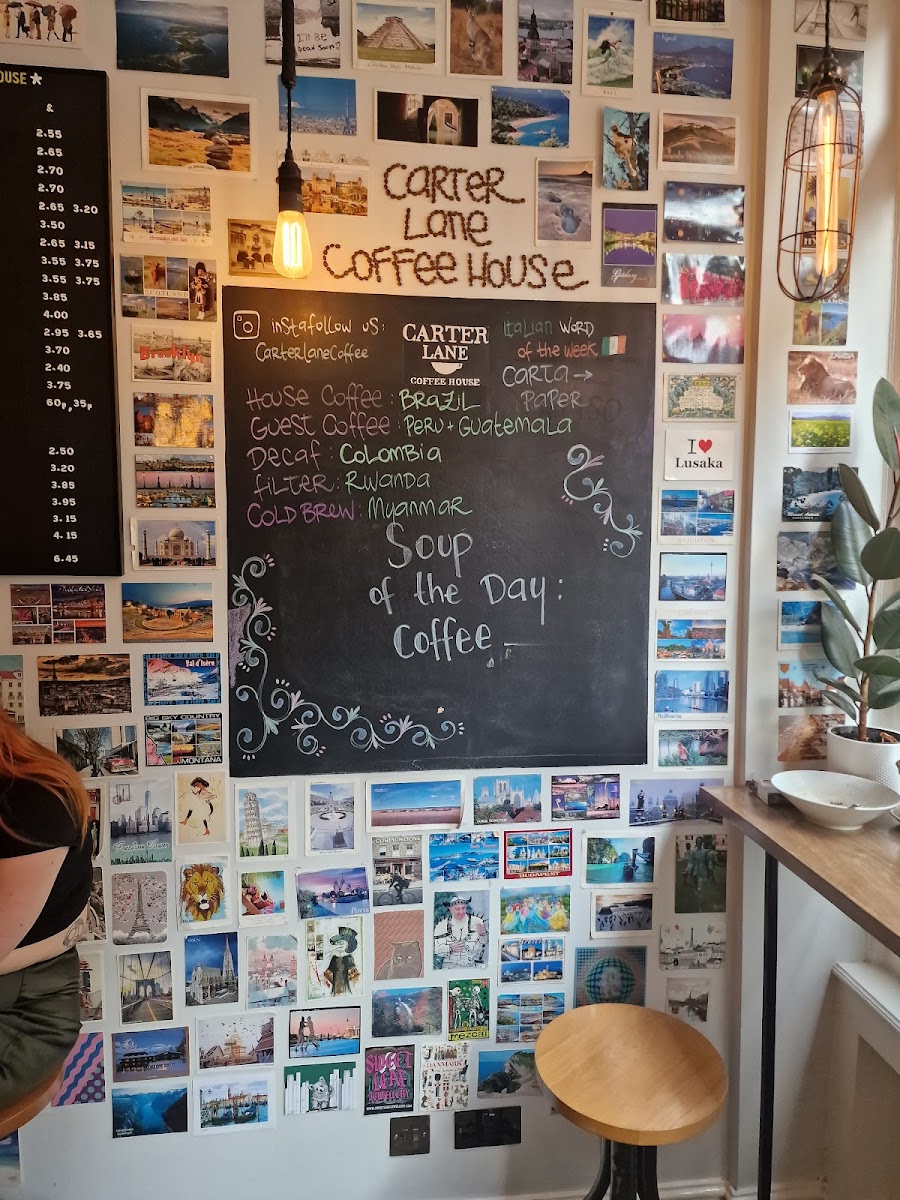 OUSE *
£
2.55
2.65
2.70
2.70
2.65 3.20
3.50
2.65 3.15
3.55 3.75
3.55 3.75
3.85
4.00
2.95 3.65
3.70
2.40
3.75
60p, 35p
2.50
3.20
3.85
3.95
3.15
4.15
6.45
CARTER
LANE
COFFEE HOUSE
instafollow us:
CarterLaneCoffee
CARTER
LANE
COFFEE HOUSE
Italian WORD
of the week
CARTA →
PAPER
House Coffee: BRAZIL
Guest Coffee: PERU + GUATEMALA
Decaf: COLOMBIA
FILTER: RWANDA
COLD BREW: MYANMAR
Soup
of the Day:
Coffee
SCOTLAND
Brooklyn
PRAHA
Val d'Isère
BIG SKY COUNTRY
MONTANA
I ♥
Lusaka
BRIGHTON
Melbourne
BUDAPEST
Paris
WIEN
mezcal
DENMARK